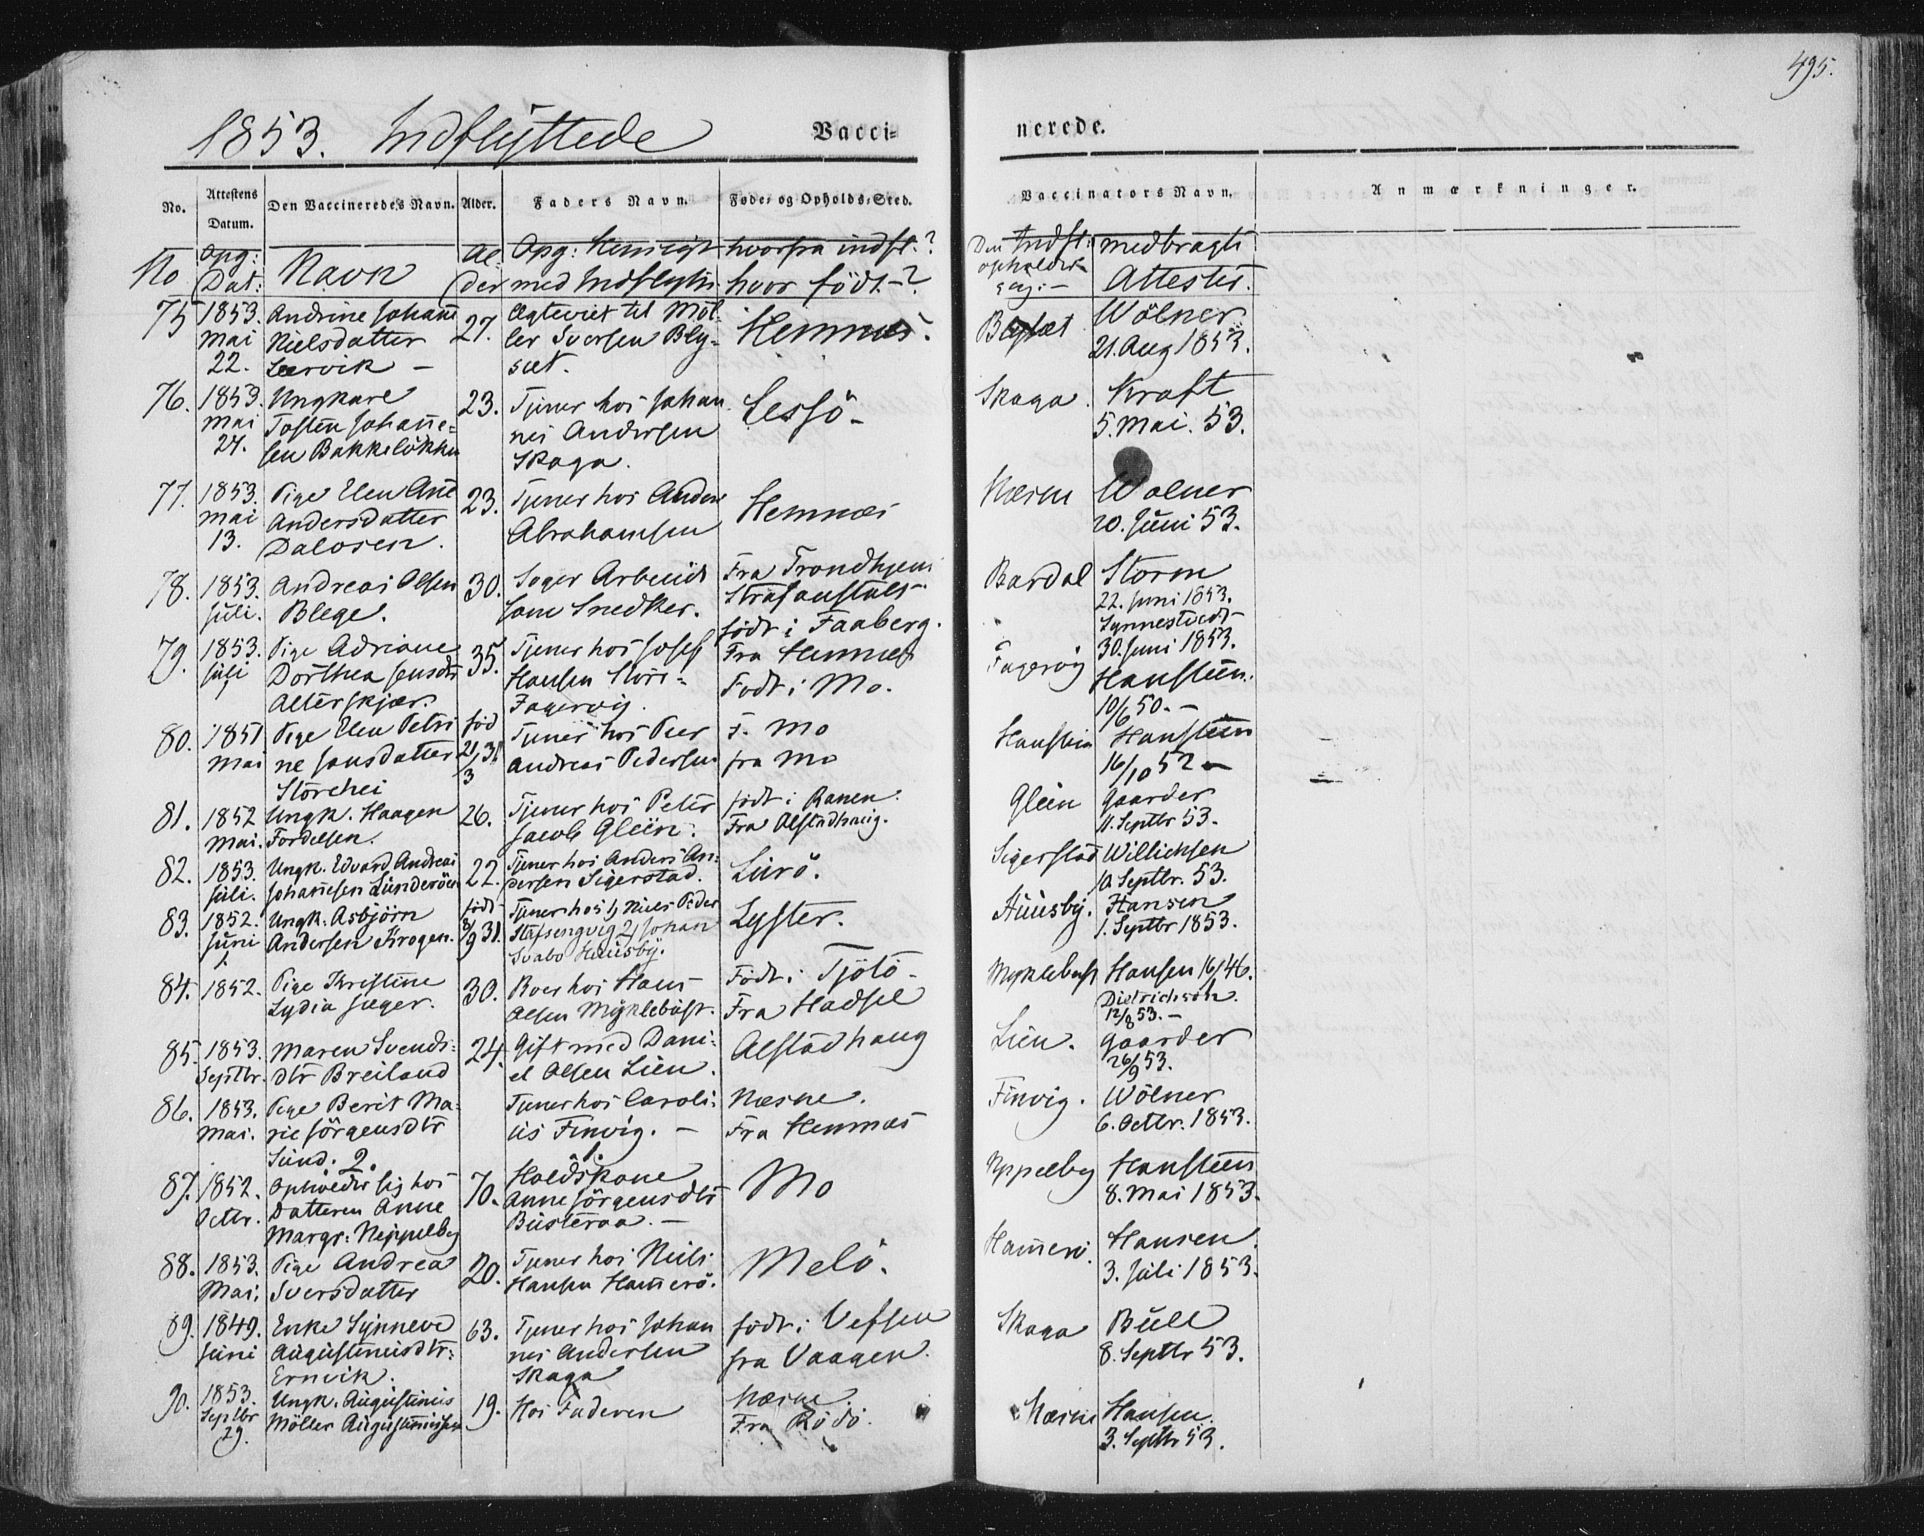 495.
1853. Indflyttede
Vaccinerede.
No. Attestens Datum. Den Vaccineredes Navn. Alder. Faders Navn. Føde- og Opholds-Sted. Vaccinators Navn. Anmærkninger.
No Opg: Dat: Navn Alder Opg: Hensigt med Indflytn hvorfra indfl.? hvor födt-? Den Indfl: opholder sig:- medbragte Attester.
75 1853. Mai 22. Andrine Johane Nielsdatter Leervik - 27. Egteviet til Möller Sversen Blysæt. Hemnæs. Blysæt Wölner 21. Aug 1853.
76. 1853. Mai 24. Ungkare Tosten Johannesen Bakkelökken 23. Tjener hos Johannes Andersen Skaga. Lessö- Skaga. Kraft 5. Mai. 53.
77. 1853. Mai 13. Pige Elen Ane Andersdatter Dalosen. 23. Tjener hos Anders Abrahamsen Hemnæs Næsne Wolner 20. Juni 53.
78. 1853. Juli. Andreas Olsen Blege. 30. Søger Arbeide som Snedker. Fra Trondhjems Strafanstalt- födt i Faaberg. Bardal Storm 22. Juni 1853. Synnestvedt 30. Juni 1853.
79. 1853. Juli Pige Adriane Dorthea Jensdtr Alterskjær. 35. Tjener hos Josef Hansen Store-Fagervig. Fra Hemnæs Födt i Mo. Fagervig Hansteen. 10/6 50.-
80. 1851 Mai Pige Elen Petrine Jonsdatter Storehei föd 21/3 31 Tjener hos Peer Andreas Pedersen F. Mo fra Mo Hansteen 16/10 52-
81. 1852 Mai. Ungk. Haagen Fordelsen. 26. Tjener hos Peter Jacob Glein. födt i Ranen. Fra Alstadhaug. Glein Gaarder 11. Septbr 53.
82. 1853. Juli. Ungk. Edvard Andreas Johannesen Lunderöen 22. Tjener hos Anders Andersen Sigerstad. Lurö. Sigerstad Willichsen 10. Septbr. 53.
83. 1852. Juni Ungk. Asbjörn Andersen Krogen. födt 8/9 31. Tjener hos 1, Niels Peder 2, Johan Svabo Huusby. Lyster. Huusby. Hansen 1. Septbr 1853.
84. 1852. Pige Kristine Lydia Jæger. 30. Boer hos Hans Olsen Myklebust. Födt i Tjötö- Fra Hadsel Myklebust Hansen 16/ 46. Dietrichson. 12/8 53.-
85. 1853. Septbr. Maren Svendsdtr Breiland 24. Gift med Daniel Olsen Lien. Alstadhaug Lien. Gaarder 26/9 53.
86. 1853. Mai. Pige Berit Marie Jörgensdtr Sund. Tjener hos Carolius Finvig. - Næsne. Fra Hemnæs Finvig. Wölner 6. Octbr. 1853.
87. 1852. Octbr. 2. Opholder sig hos Datteren Anne Margr: Neppelby 70. 1. Holdskone Anne Jörgensdtr Busteraa.- Mo Neppelby Hansteen 8. Mai 1853.
88. 1853. Mai. Pige Andrea Sversdatter 20. Tjener hos Niels Hansen Hamerö. Melö. Hamerö. Hansen. 3. Juli 1853.
89. 1849. Juni Enke Synneve Augustinusdtr: Ernvik. 63. Tjener hos Johannes Andersen Skaga födt i Vefsen fra Vaagen. Skaga Bull 8. Septbr 53.
90. 1853. Septbr 29. Ungk. Augustinus Möller Augustinussen 19. Hos Faderen Næsne. Fra Rödö. Næsne Hansen. 3. Septbr 53.